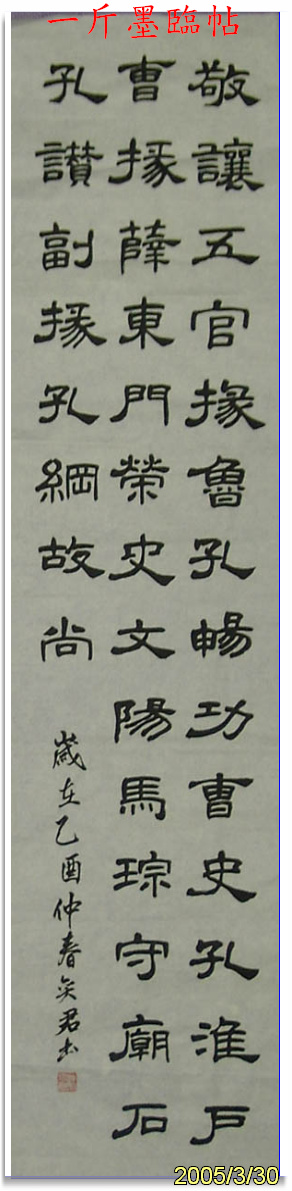 一斤墨臨帖
敬讓五官掾魯孔暢功曹史孔淮戶
曹掾薛東門榮史文陽馬琮守廟石
孔讚副掾孔綱故尚
歲在乙酉仲春君书
2005/3/30